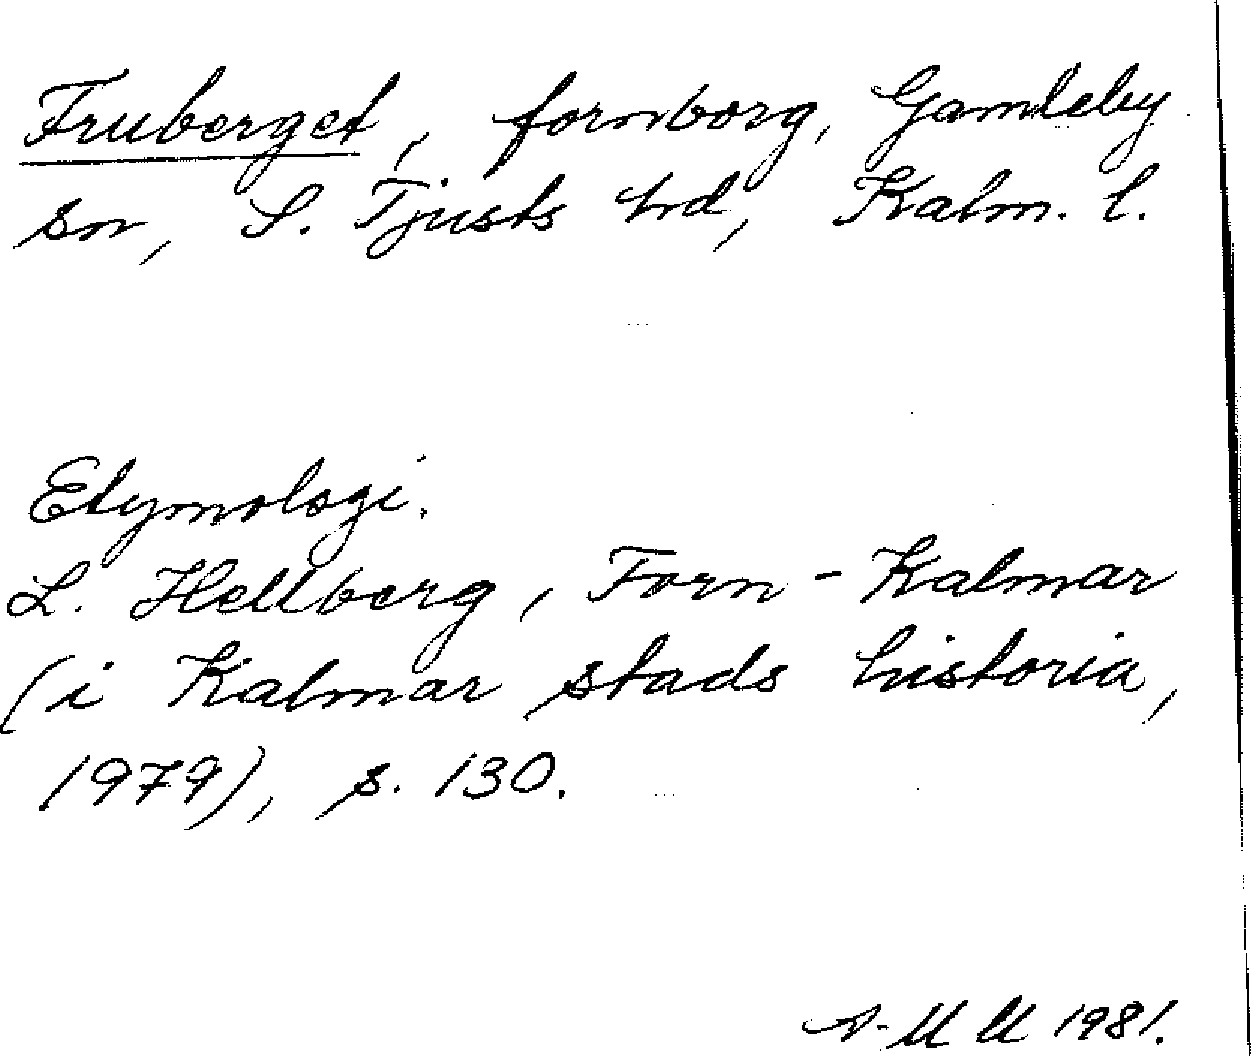 Fruberget, fornborg, Gamleby
sn, S. Tjusts hd, Kalm. l.
Etymologi.
L. Hellberg, Forn-Kalmar
(i Kalmar stads historia,
1979), s. 130.
A-M U 1981.